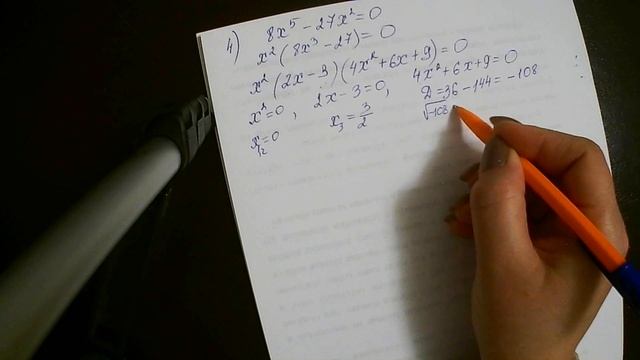 4) 8x⁵ - 27x² = 0
x² (8x³ - 27) = 0
x² (2x - 3) (4x² + 6x + 9) = 0
x² = 0 , 2x - 3 = 0, 4x² + 6x + 9 = 0
x₁,₂ = 0 x₃ = 3/2 D = 36 - 144 = -108
√-108